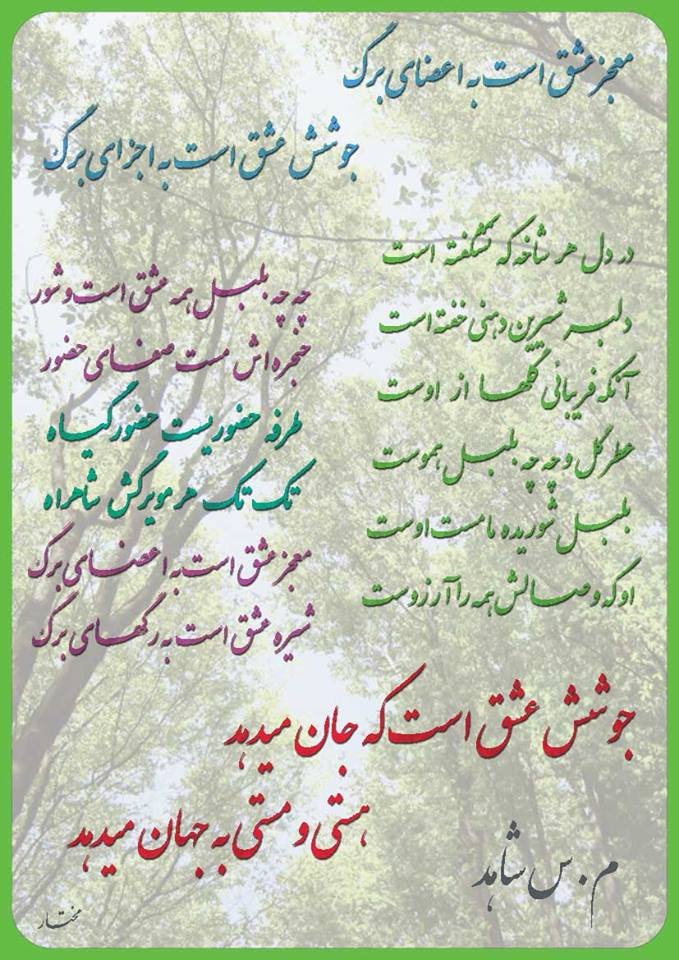 معجز عشق است به اعضای برگ
جوشش عشق است به اجزای برگ
در دل هر شاخه که نشکفته است
دلبر شیرین دهنی خفته است
آنکه فریبائی گلها از اوست
عطر گل و چه چه بلبل هموست
بلبل شوریده ما مست اوست
او که وصالش همه را آرزوست
چه چه بلبل همه عشق است و شور
حنجره اش مست صفای حضور
طرفه حضوریست حضور گیاه
تک تک هر مویرگش شاهراه
معجز عشق است به اعضای برگ
شیره عشق است به رگهای برگ
جوشش عشق است که جان میدهد
هستی و مستی به جهان میدهد
م . س شاهد
مختار